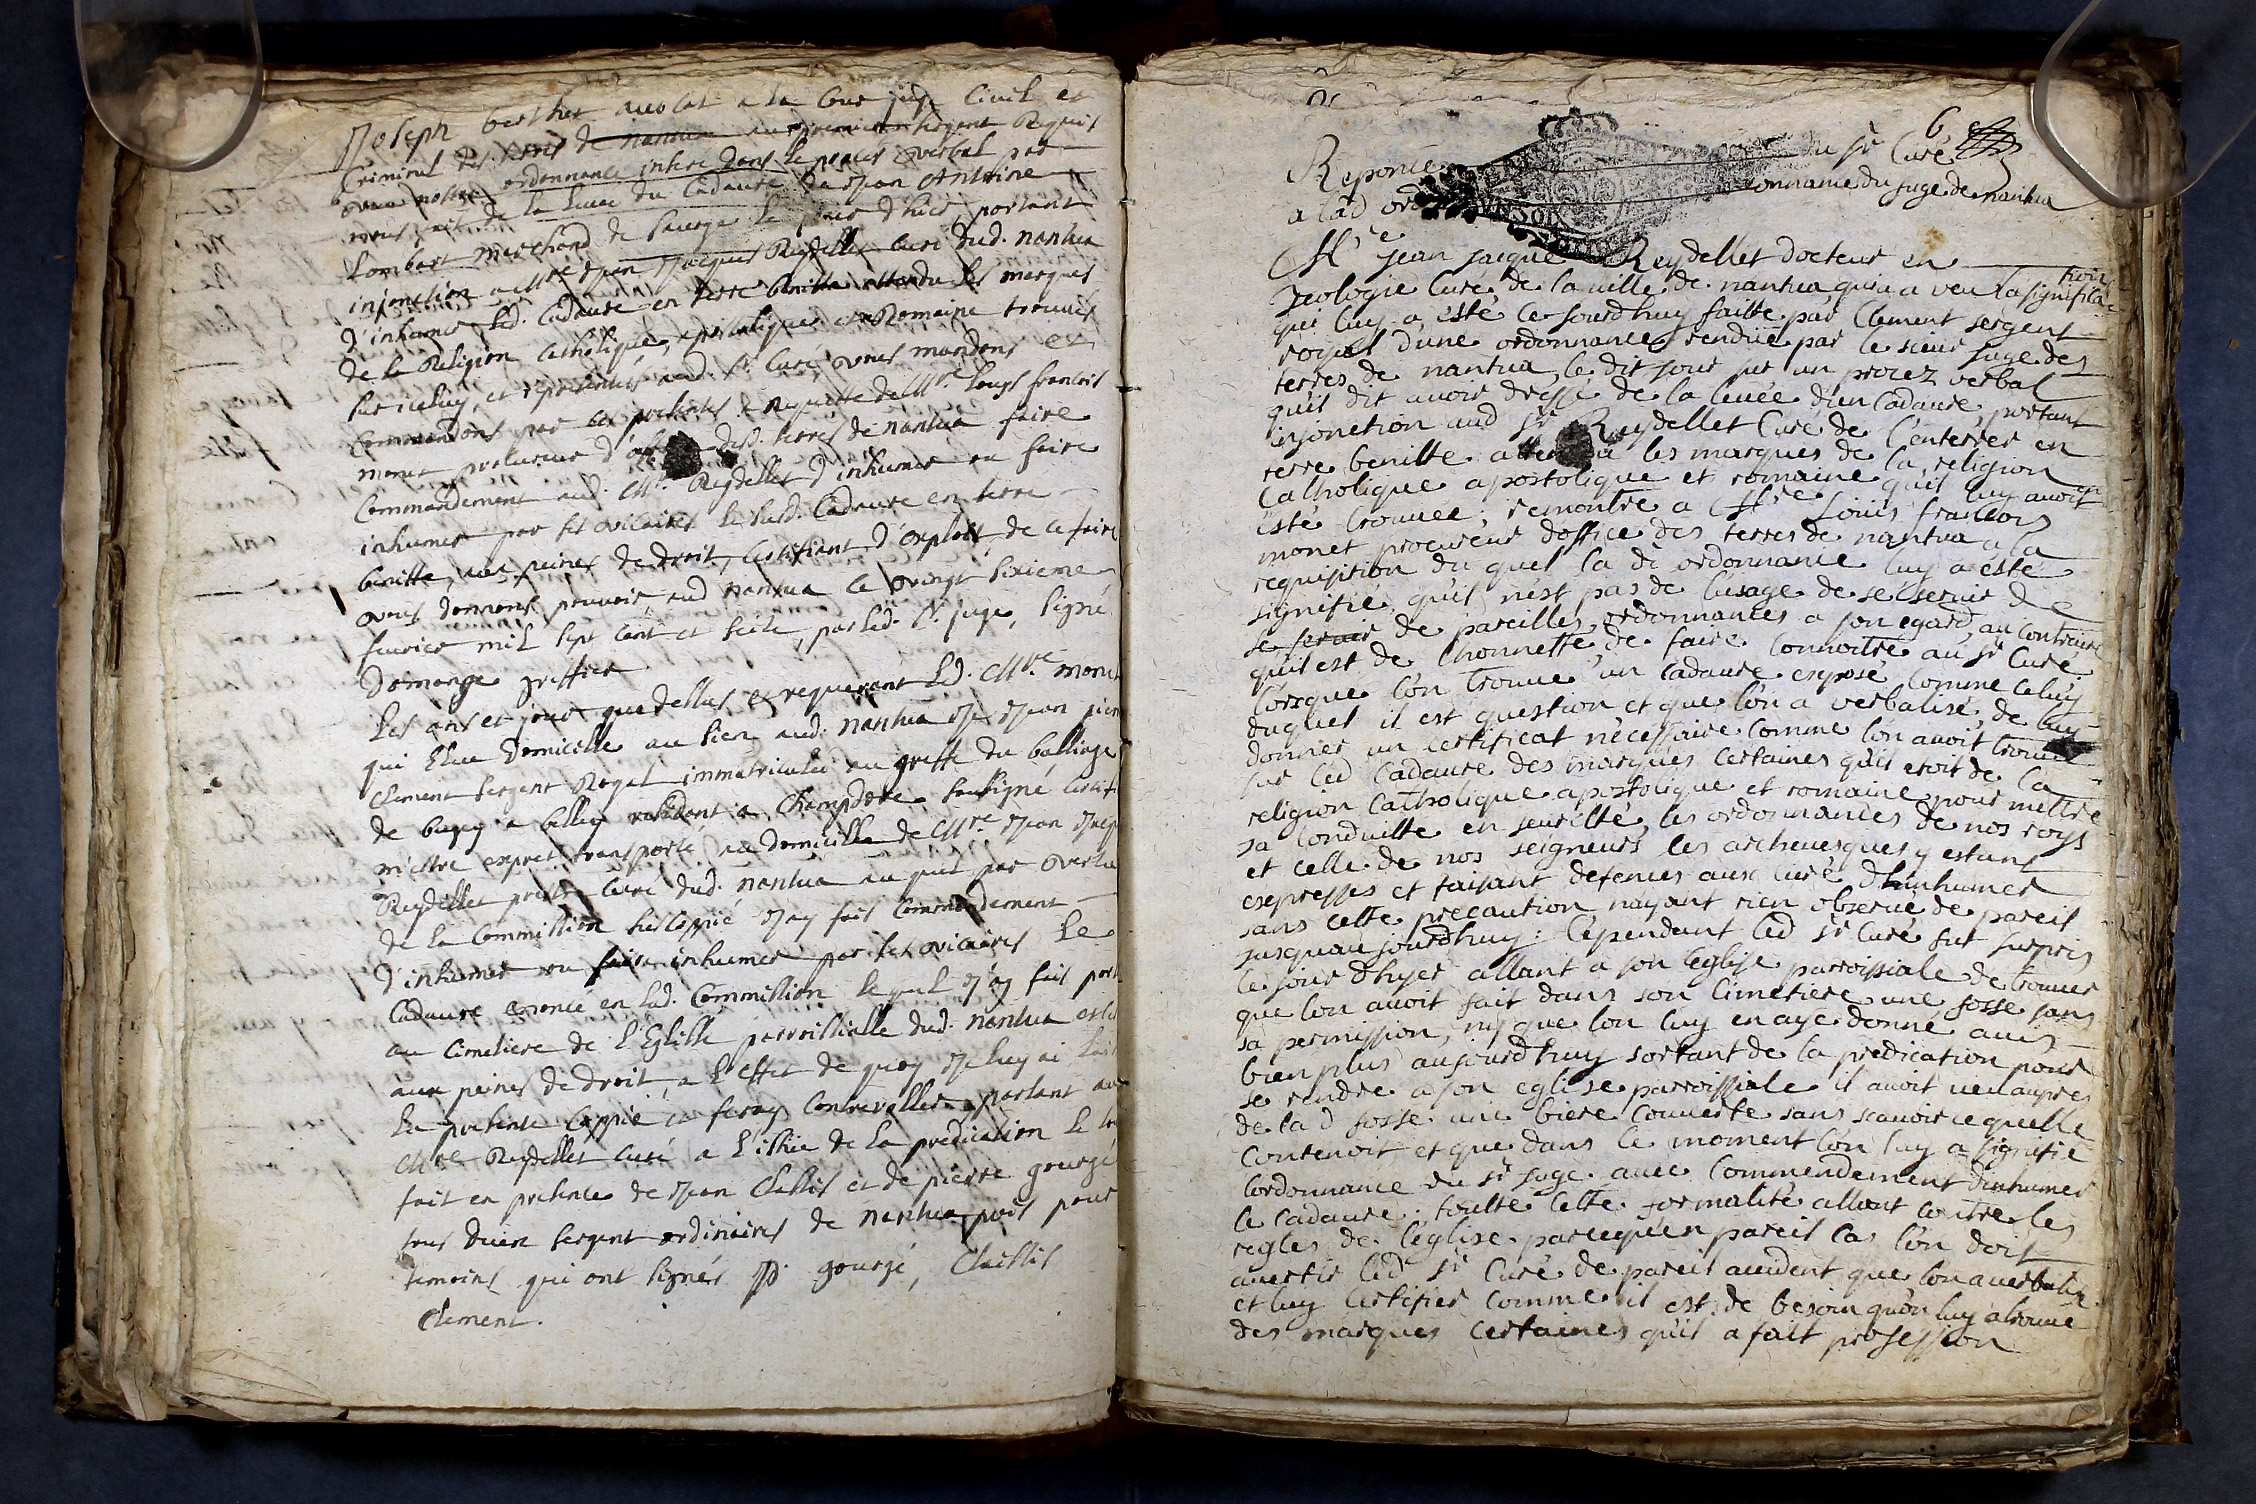 Joseph berthet auocat a la Cour juge Civil et
Criminel des terres de nantua au premier sergent Requis
veu nostre ordonnance inseré dans le procés verbal par
nous fait de la leuee du Cadaure de Jean Antoine
Lombart marchand de le jour d'hier, portant
injonction a Mre Jean Jacques Reydellet Curé dud. nantua
d'inhumer led. Cadaure en terre benitte attendu les marques
de la Religion Catholique, apostolique et Romaine trouvéés
sur iceluy, et representéés aud. Sr Curé, vous mandons et
Commandons par ces presentes a Requette de Mre Louys francois
monet procureur d'office desd. terres de nantua faire
Commandement aud. Mre Reydellet d'inhumer ou faire
inhumer par ses vicaires le susd. Cadaure en terre
benitte, aux peines de droit, Certifiant d'exploit de ce faire
vous donnons pouvoir, aud nantua ce vingt sixieme
feurier mil sept cent et seize, par led. Sr juge, signé
Domange greffier
Les ans et jour que dessus et requerant led. Mre monet
qui elue domicille au sien aud. nantua Je Jean pier
Clement sergent Royal immatriculé au greffe du balliage
de bugey a belley residant a Champdore soussigné Certif
m'estre exprez transporté au domicille de Mre Jean Jacq
Reydellet pretre Curé dud. nantua auquel par vertu
de la Commission sus coppié J'ay fait Commandement
d'inhumer ou faire inhumer par ses vicaires le
Cadaure enoncé en lad. Commission lequel J'ay fait port
au Cimetiere de l'Eglise parroissialle dud. nantua et
aux peines de droit, a l'effet de quoy Je luy ai lais
la presente Coppié et feray Controller parlant aud
Mre Reydellet Curé a l'issüe de la predication le tou
fait en presence de Jean Claissis et de pierre gourgé
tous deux sergent ordinaires de nantua, pris pour
temoins qui ont signés P. gourgé, Claissis
Clement.
6
Reponce du Sr Curé
a lad ordonnance du Juge de nantua
Mre Jean Jacque Reydellet docteur en
Teologie Curé de la ville de nantua qui a veu la signification
qui luy a esté ce jourdhuy faitte par Clement sergent
royal d'une ordonnance rendüe par le sieur Juge des
terres de nantua le dit jour sur un procez verbal
quil dit auoir dressé de la leuée d'un Cadaure, portant
injonction aud Sr Reydellet Curé de l'enterrer en
terre benitte attendu les marques de la religion
Catholique apostolique et romaine quil luy auoit
esté trouuée; remontre a Mre Loüis francois
monet procureur doffice des terres de nantua a la
requisition du quel la de ordonnance luy a esté
signifié, quil nest pas de l'usage de se seruir de
se seruir de pareilles ordonnances a son egard, au contraire
quil est de lhonnette de faire Connoitre au Sr Curé
lorsque l'on trouue un Cadaure exposé Comme celuy
duquel il est question et que l'on a verbalisé, de luy
donner un certificat nécessaire comme l'on auoit trouué
sur led Cadaure des marques certaines quil etoit de la
religion Catholique apostolique et romaine pour mettre
sa Conduitte en seureté, les ordonnances de nos roys
et celle de nos seigneurs les archeuesques y estant
expresses et faisant defences aux Curé d'inhumer
sans cette precaution nayant rien obserué de pareil
jusquau jourdhuy: Cependant led Sr Curé fut surpris
le jour dhyer allant a son Eglise parroissiale de trouuer
que lon auoit fait dans son Cimetiere une fosse sans
sa permission, ny que lon luy en aye donné auis
bien plus aujourdhuy sortant de la predication pour
se rendre a son eglise parroissiale il auoit ueu aupres
de la d fosse une biere Couuerte sans scauoir ce quelle
Contenoit et que dans le moment l'on luy a signifié
lordonnance du Sr Juge auec Commendement dinhumer
le Cadaure. toutte Cette formalité allant contre les
regles de léglise parcequ'en pareil Cas l'on doit
auertir led Sr Curé de pareil accident que lon a verbalizé
et luy Certifier Comme il est de besoin quon luy a trouué
des marques Certaines qu'il a fait profession